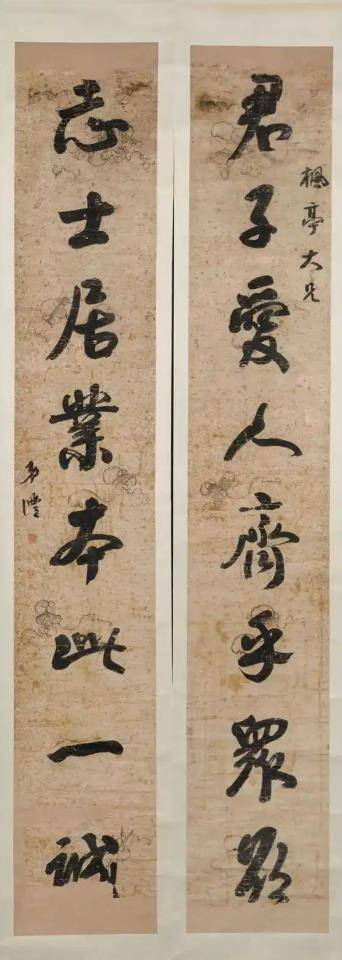 楓亭大兄
君子愛人齊乎眾
志士居業本此一誠
澧